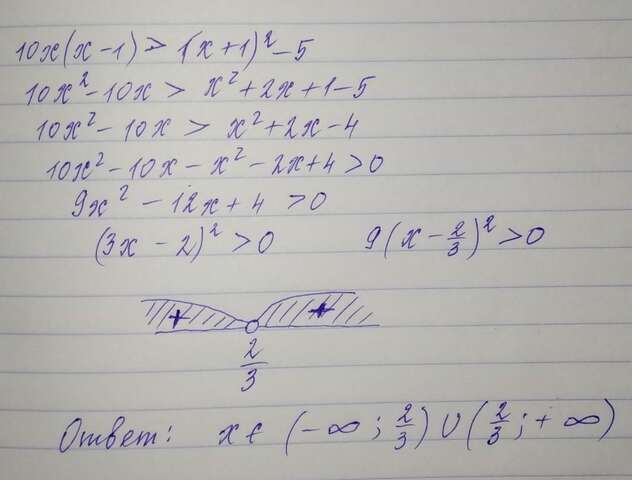 10x(x-1) > 1(x+1)²-5
10x²-10x > x²+2x+1-5
10x²-10x > x²+2x-4
10x²-10x-x²-2x+4>0
9x²-12x+4 >0
(3x-2)²>0 9(x-2/3)²>0
+ +
2/3
Ответ: x ∈ (-∞; 2/3) ∪ (2/3; +∞)